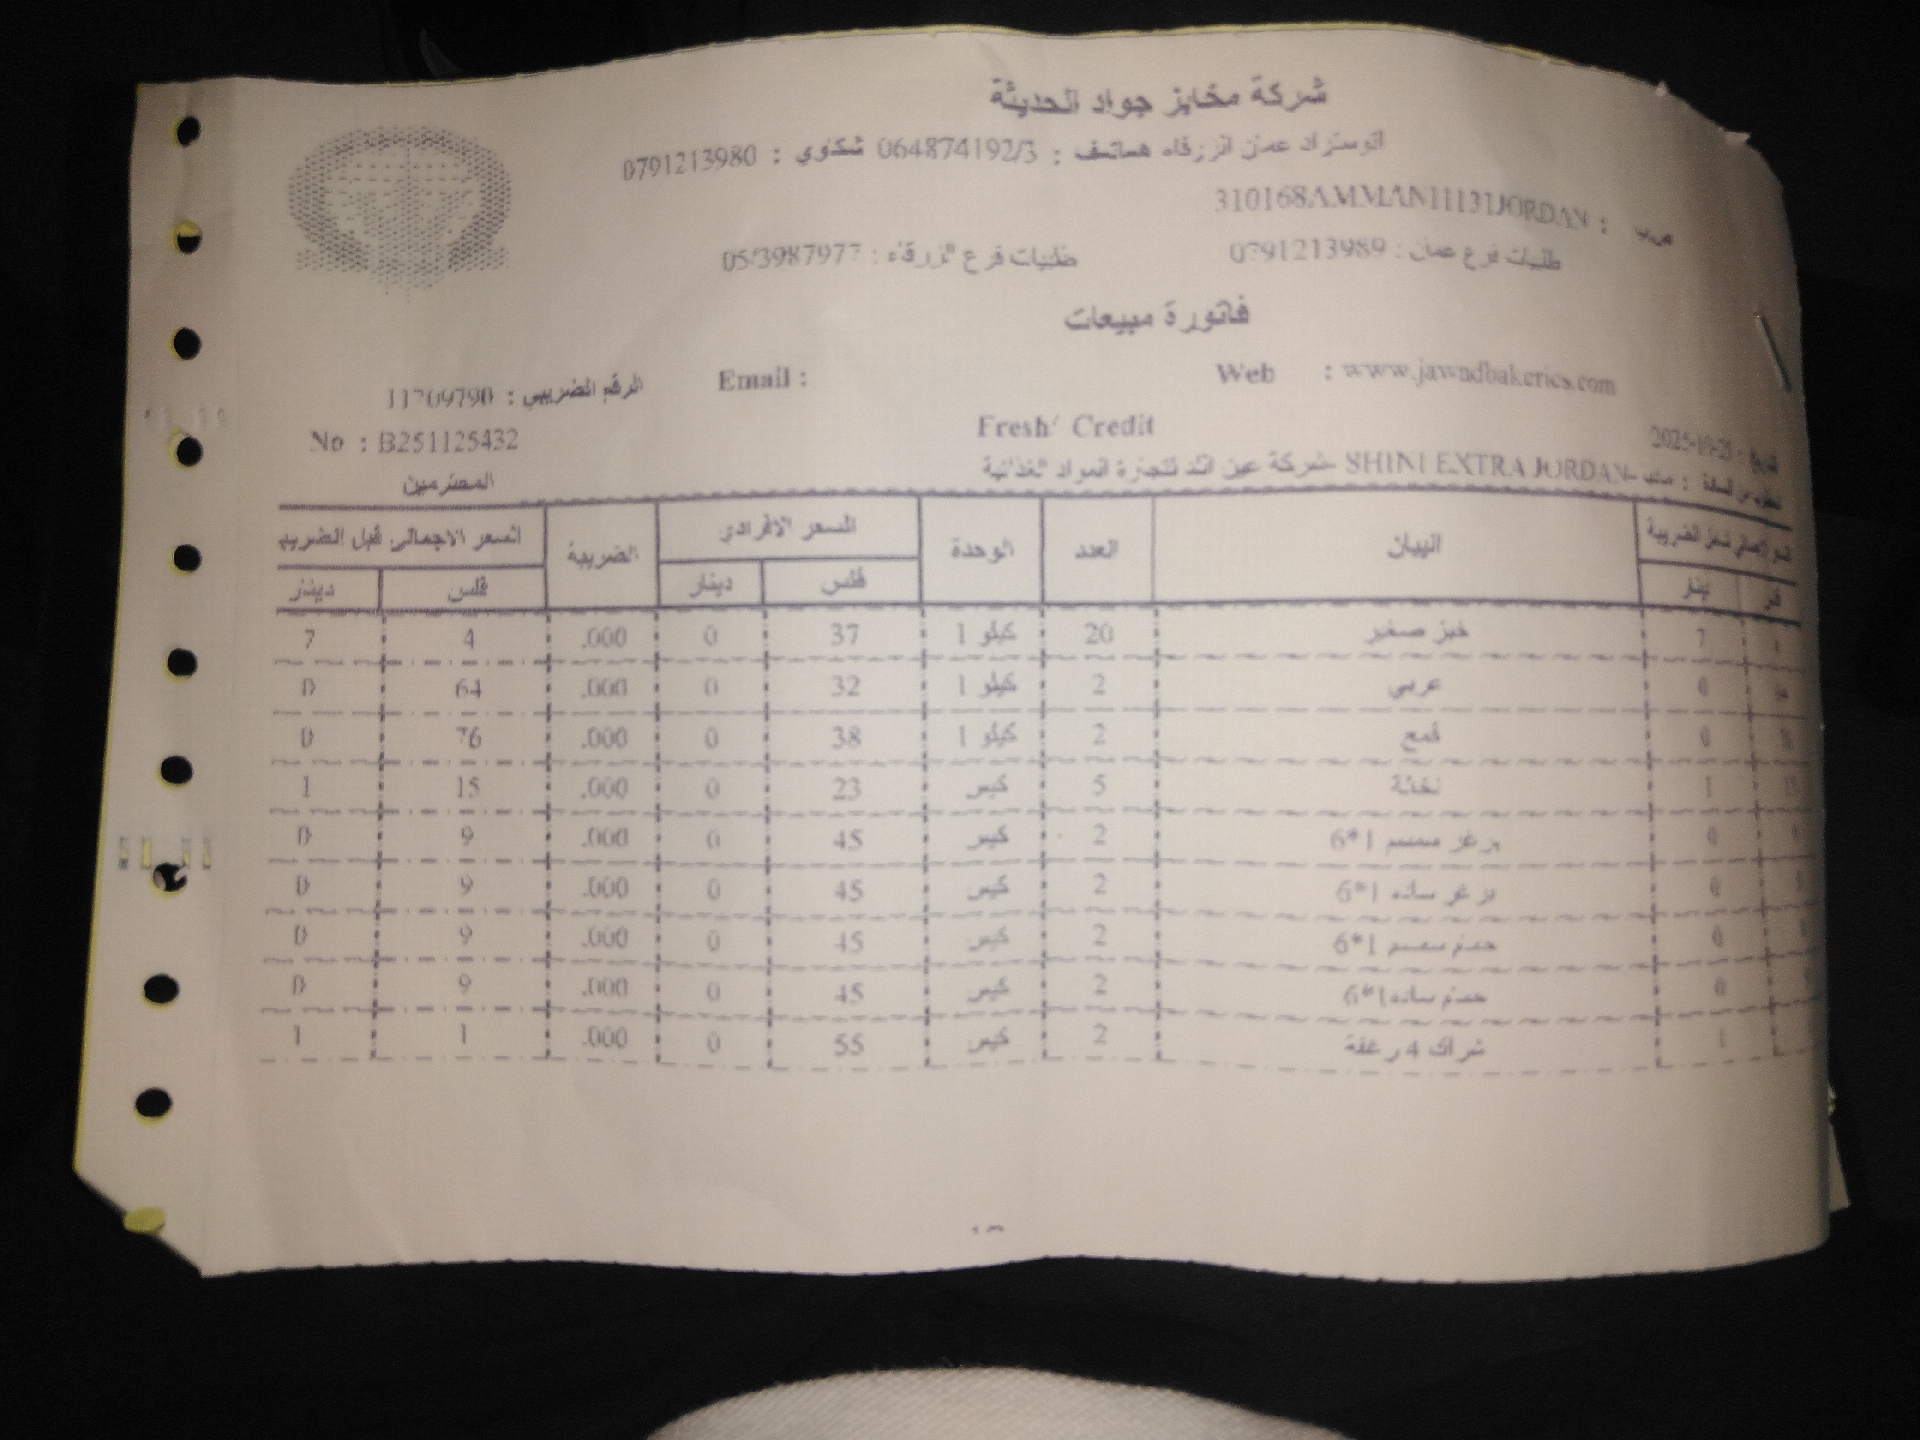 شركة مخابز جواد الحديثة
اتوستراد عمان الزرقاء هاتف : 064874192/3 شكاوي : 0791213980
ص.ب : 310168AMMAN11131JORDAN
طلبات فرع عمان : 0791213989 طلبيات فرع الزرقاء : 05/3987977
فاتورة مبيعات
Web : www.jawadbakeries.com Email : الرقم الضريبي : 11709790
Fresh/ Credit No : B251125432
SHINI EXTRA JORDAN- شركة عين الد لتجارة المواد الغذائية المحترمين
البيان العدد الوحدة السعر الافرادي الضريبة السعر الاجمالي قبل الضريبه
دينار فلس دينار فلس دينار
7 خبز صغير 20 كيلو 1 37 0 .000 4 7
0 عربي 2 كيلو 1 32 0 .000 64 0
0 قمح 2 كيلو 1 38 0 .000 76 0
1 نخالة 5 كيس 23 0 .000 15 1
0 برغر سمسم 1*6 2 كيس 45 0 .000 9 0
0 برغر ساده 1*6 2 كيس 45 0 .000 9 0
0 حمام سمسم 1*6 2 كيس 45 0 .000 9 0
0 حمام ساده1*6 2 كيس 45 0 .000 9 0
1 شراك 4 رغفة 2 كيس 55 0 .000 1 1